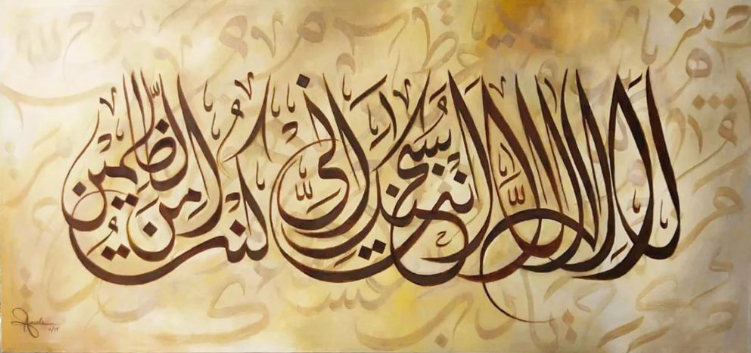 لا إله إلا أنت سبحنك إني كنت من الظلمين